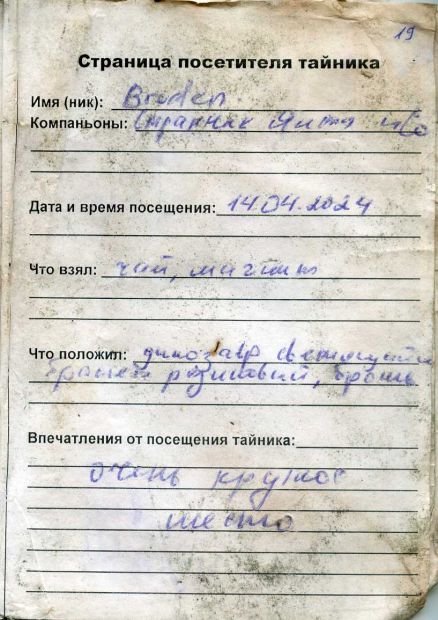 19
Страница посетителя тайника
Имя (ник): Broden
Компаньоны: Странник Яшма и Со
Дата и время посещения: 14.04.2024
Что взял: чай, магнит
Что положил: динозавр светящийся
браслет резиновый, брошь
Впечатления от посещения тайника:
очень крутое
место